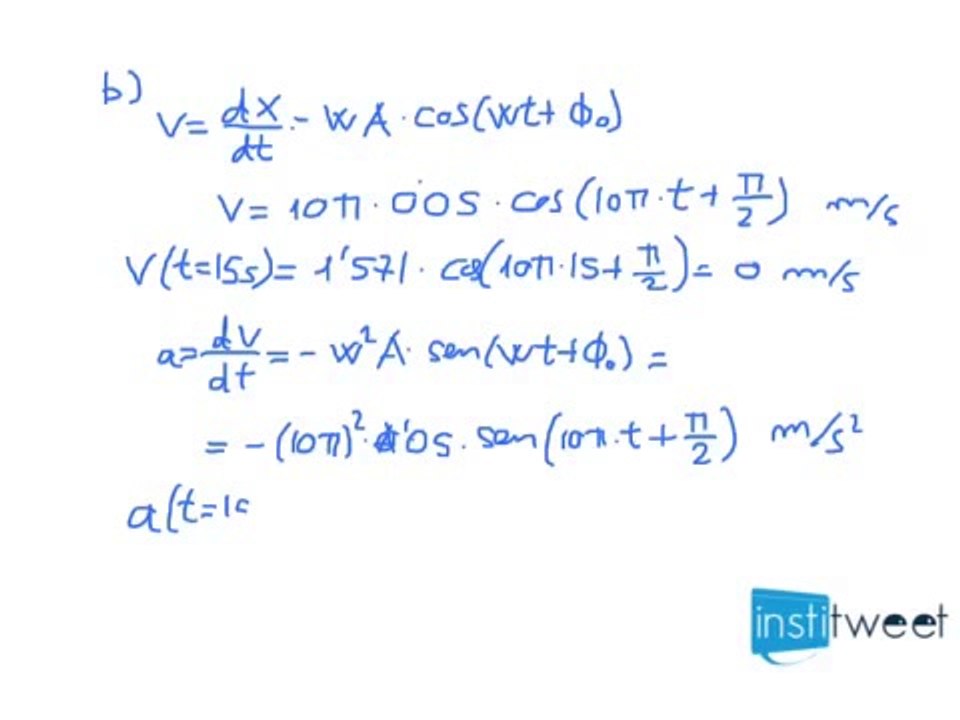 b)
V = dx/dt = WA · cos(Wt + ϕ₀)
V = 10π · 0'05 · cos(10π · t + π/2) m/s
V(t=15s) = 1'571 · cos(10π · 15 + π/2) = 0 m/s
a = dV/dt = - W²A · sen(Wt + ϕ₀) =
= - (10π)² · 0'05 · sen(10π · t + π/2) m/s²
a(t=1
institweet